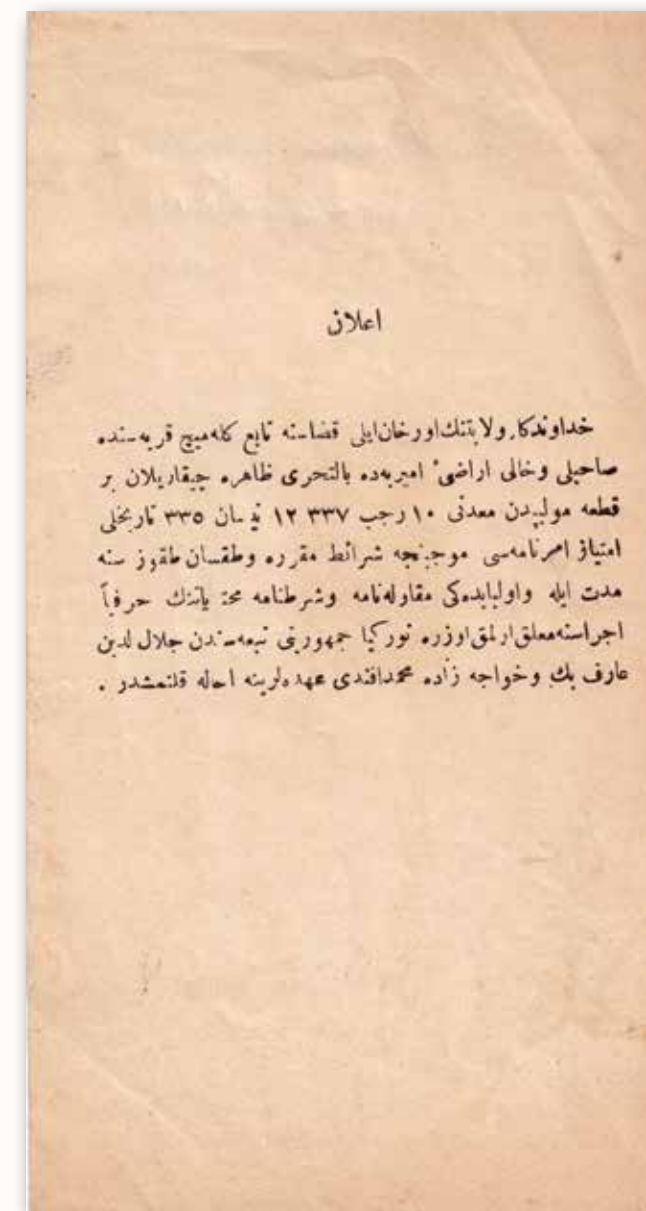 اعلان
خداوندكار ولايتنك اورخان‌ايلى قضاسنه تابع كله‌ميج قريه‌سنده
صاحبلى وخالى اراضىٔ اميريه‌ده بالتحرى ظاهره چيقاريلان بر
قطعه موليبدن معدنى ١٠ رجب ٣٣٧ ١٢ نيسان ٣٣٥ تاريخلى
امتياز امرنامه‌سى موجبنجه شرائط مقرره وطقسان طقوز سنه
مدت ايله واولبابده‌كى مقاوله‌نامه وشرطنامه محتوياتنك حرفياً
اجراسنه معلق اولمق اوزره توركيا جمهوريتى تبعه‌سندن جلال الدين
عارف بك وخواجه زاده محمد افندى عهده‌لرينه احاله قلنمشدر .